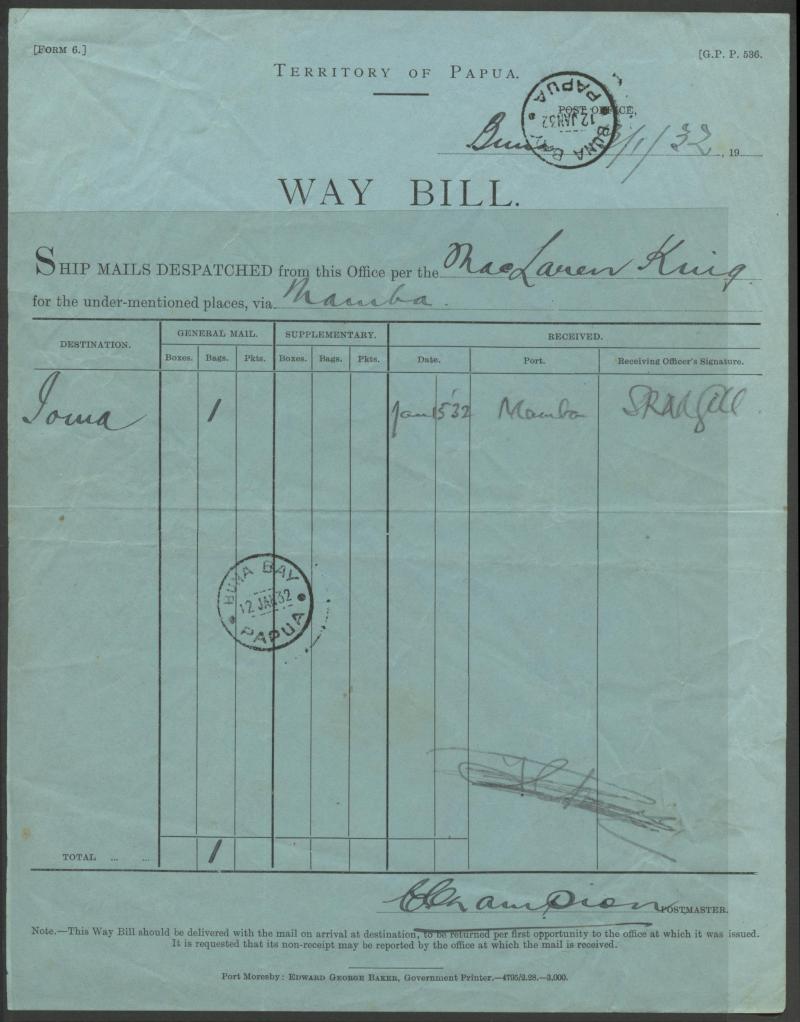 [FORM 6.]
[G.P. P. 536.
TERRITORY OF PAPUA.
POST OFFICE,
BUNA BAY
12 JAN 32
PAPUA
Buna /1/32, 19
WAY BILL.
SHIP MAILS DESPATCHED from this Office per the MacLaren King
for the under-mentioned places, via Mamba.
DESTINATION. GENERAL MAIL. SUPPLEMENTARY. RECEIVED.
Boxes. Bags. Pkts. Boxes. Bags. Pkts. Date. Port. Receiving Officer's Signature.
Ioma 1 Jan 15 '32 Mamba
BUNA BAY
12 JAN 32
PAPUA
TOTAL ... ... 1
Champion POSTMASTER.
Note.—This Way Bill should be delivered with the mail on arrival at destination, to be returned per first opportunity to the office at which it was issued.
It is requested that its non-receipt may be reported by the office at which the mail is received.
Port Moresby: EDWARD GEORGE BAKER, Government Printer.—4795/2.28.—3,000.